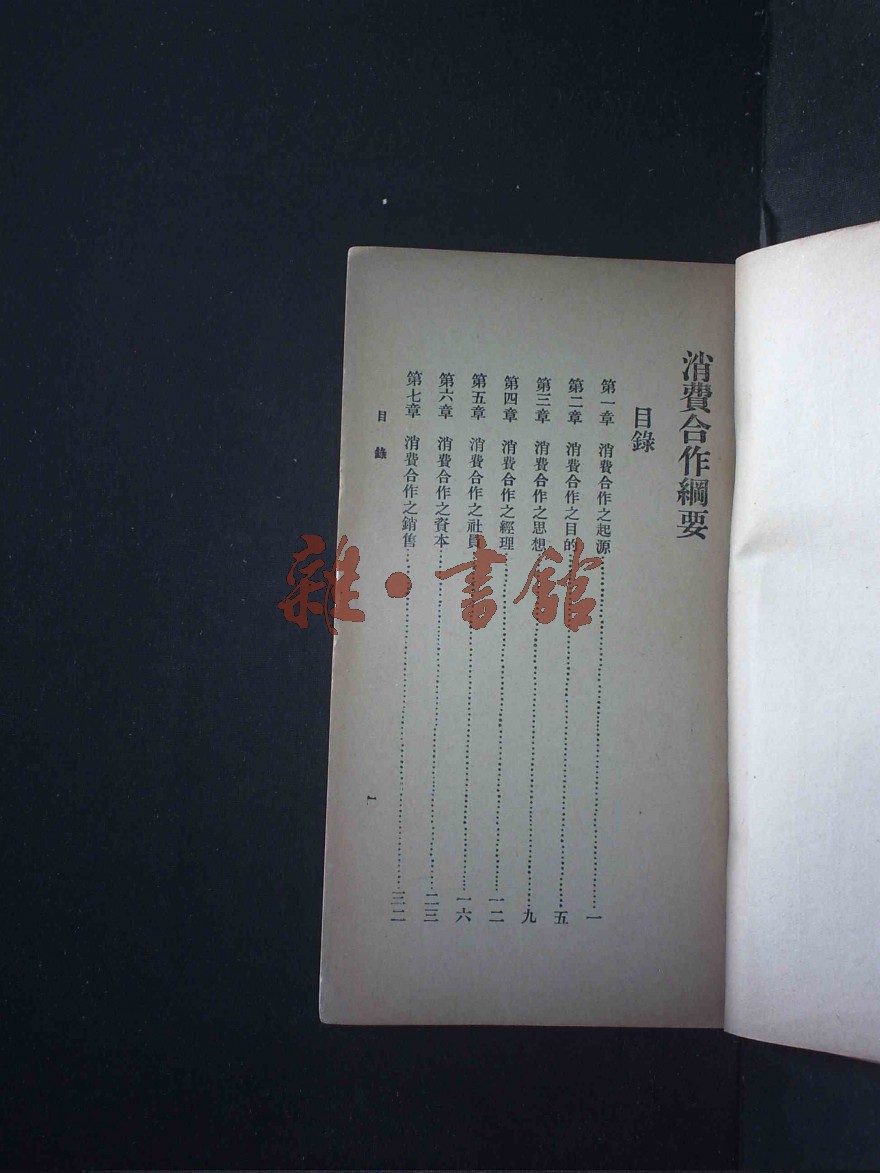 消費合作綱要
目錄
第一章 消費合作之起源………一
第二章 消費合作之目的………五
第三章 消費合作之思想………九
第四章 消費合作之經理………一二
第五章 消費合作之社員………一六
第六章 消費合作之資本………二三
第七章 消費合作之銷售………三二
目錄
一
雜·書館